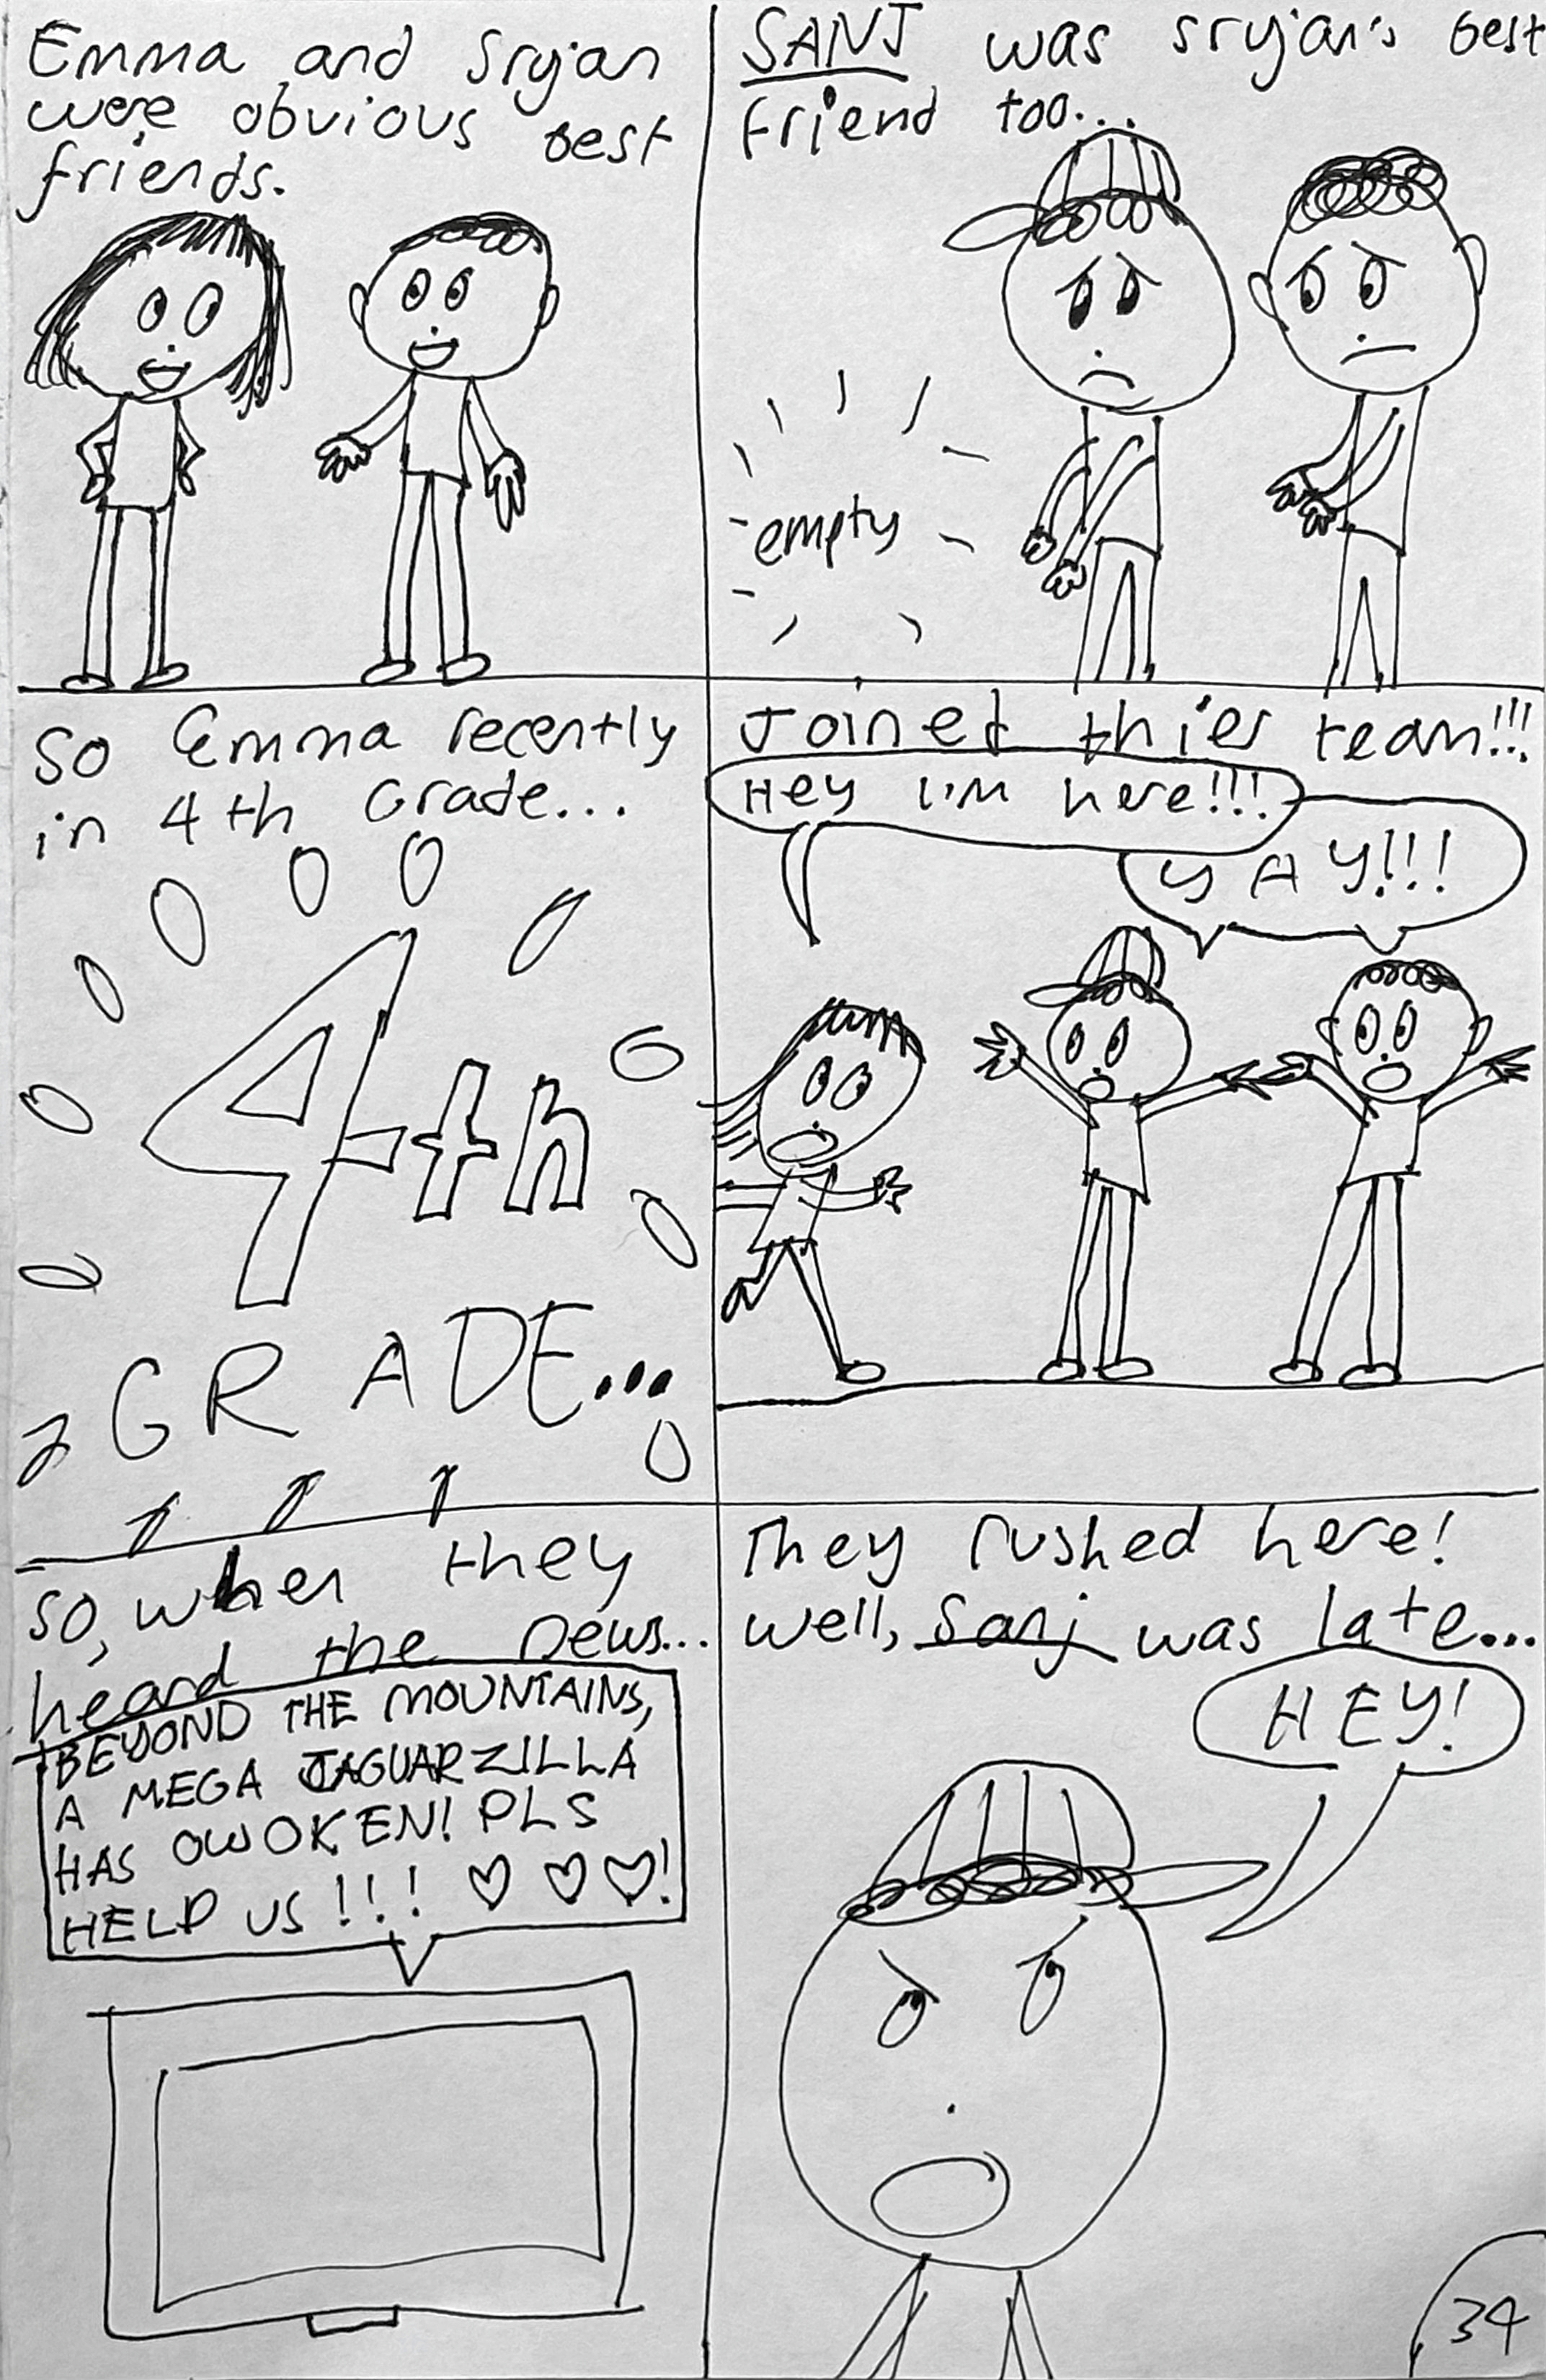 Emma and Srijan
were obvious best
friends.
SANJ was srijan's best
friend too...
empty
So Emma recently
in 4th Grade...
4th
GRADE...
Joined thier team!!!
Hey I'm here!!!
YAY!!!
So, when they
heard the news...
BEYOND THE MOUNTAINS,
A MEGA JAGUARZILLA
HAS OWOKEN! PLS
HELP US!!! ♡ ♡ ♡!
They rushed here!
well, Sanj was late...
HEY!
34